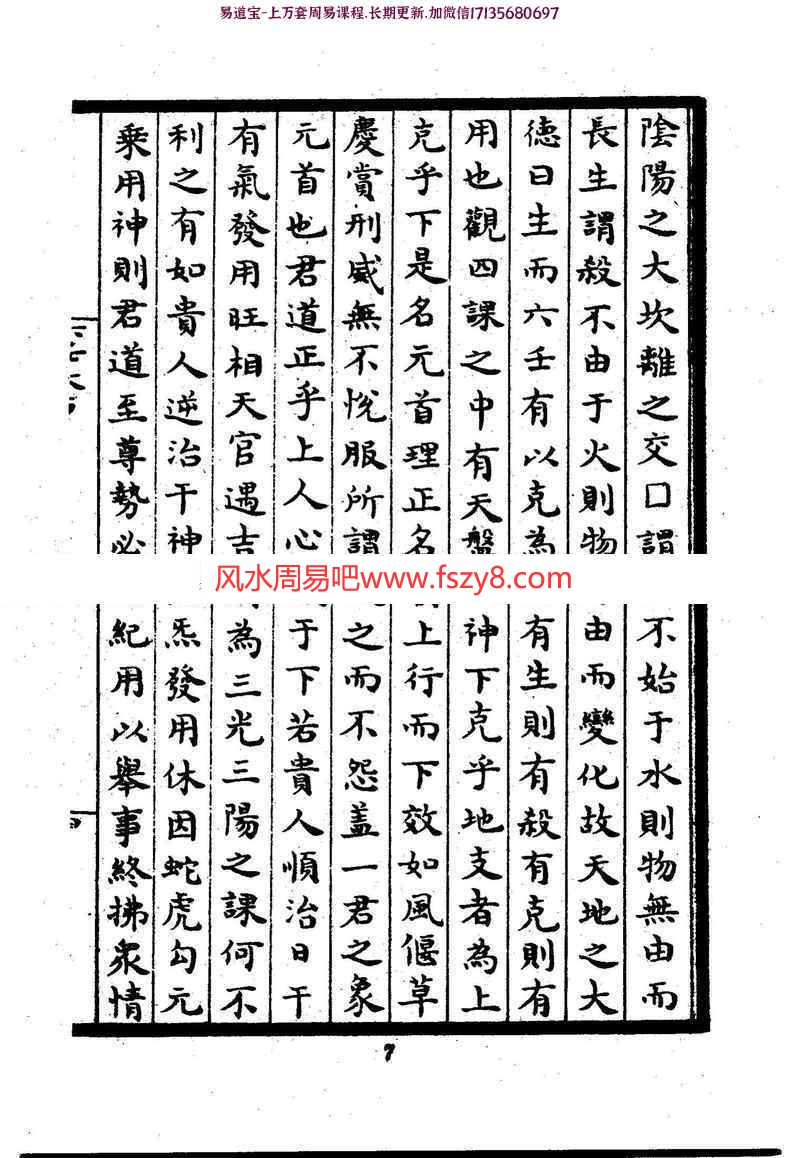 易道宝-上万套周易课程.长期更新.加微信17135680697
陰陽之大坎離之交口謂不始于水則物無由而
長生謂殺不由于火則物由而變化故天地之大
德曰生而六壬有以克為有生則有殺有克則有
用也觀四課之中有天盤神下克乎地支者為上
克乎下是名元首理正名上行而下效如風偃草
慶賞刑威無不悅服所謂之而不怨蓋一君之象
元首也君道正乎上人心于下若貴人順治日干
有氣發用旺相天官遇吉為三光三陽之課何不
利之有如貴人逆治干神炁發用休囚蛇虎勾元
乗用神則君道至尊勢必紀用以舉事終拂衆情
风水周易吧www.fszy8.com
7